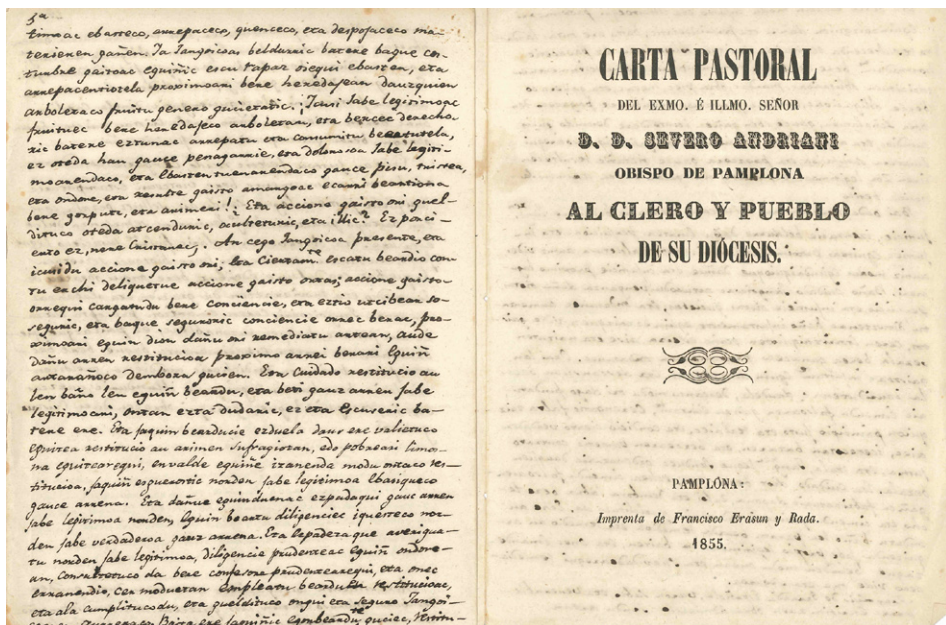 5ª
timoac ebatteco, arrepaceco, quenceco, eta desposaceco ma-
terienen gañen. Ta Jangoicoas beldurric batere bague cos-
tumbre gaistoac eguiñic escu tapar siequi ebasten, eta
arrepacentiotela proximoari bere heredasean dauzquien
arboletaco fruitu genero guzietatic; Icusi Jabe legitimoac
fruituec bere heredaseco arboletan, eta bercec derecho
ric batere eztunac arrepatu eta consumitu
ez oteda hau gauce penagarrie, eta dolorosoa Jabe legiti-
moarendaco, eta Ebastentuenarendaco gauce pisu, tristea,
eta ondore, eta resulte gaisto amargoac ecarri
bere gorputz, eta animei! Eta accione gaisto oni guel-
dituco oteda atcendunic, ocultetunic, eta illic? Ez porci-
erto ez, nere Cristianec; An cego Jangoicoa presente, eta
icusi du accione gaisto ori; Eta escatu beardio con-
tu eta deliquetue accione gaisto ontas; accione gaisto-
onequi cargatu du bere conciencie, eta eztio utcibear so-
seguric, eta baque seguroric conciencie orrec berac, pro-
ximoari eguin dion dañu ori remediatu artean, aude
dañu arren restitucioa proximo arrei beuari Eguiñ
artarañoco demboran gucien. Eta Cuidado restitucio au
len baño len eguiñ beardu, eta beti gauz arren Jabe
legitimoari, ontan ezta dudaric, ez eta Escuseric ba-
tere ere. Eta Jaquin bearducie ezduela daur ere valietuco
eguitea restitucio au animen sufragiotan, edo pobreari limos-
na eguitearequi, envalde eguiñe izanenda modu ontaco res-
titucioa, Jaquiñ ezquerostic norden Jabe legitimoa Ebasiqueco
gauce arrena. Eta dañue eguinduenac ezpadaqui gauz arren
Jabe legitimoa norden, Eguin beartu diligenciec iquesteco nor-
den Jabe verdaderoa gauz arrena. Eta Ezpadezaque averigua-
tu norden Jabe legitimoa, diligencie prudenteac eguiñ ondore-
an, Consultetuco da bere confesore prudentearequi, eta onec
erranendio, cer moduetan enpleatu bearduen restitucioac,
eta ala cumplitucodu, eta gueldituco ongui eta seguro Jangoi-
CARTA PASTORAL
DEL EXMO. É ILLMO. SEÑOR
D. D. SEVERO ANDRIANI
OBISPO DE PAMPLONA
AL CLERO Y PUEBLO
DE SU DIÓCESIS.
PAMPLONA:
Imprenta de Francisco Erasun y Rada.
1855.